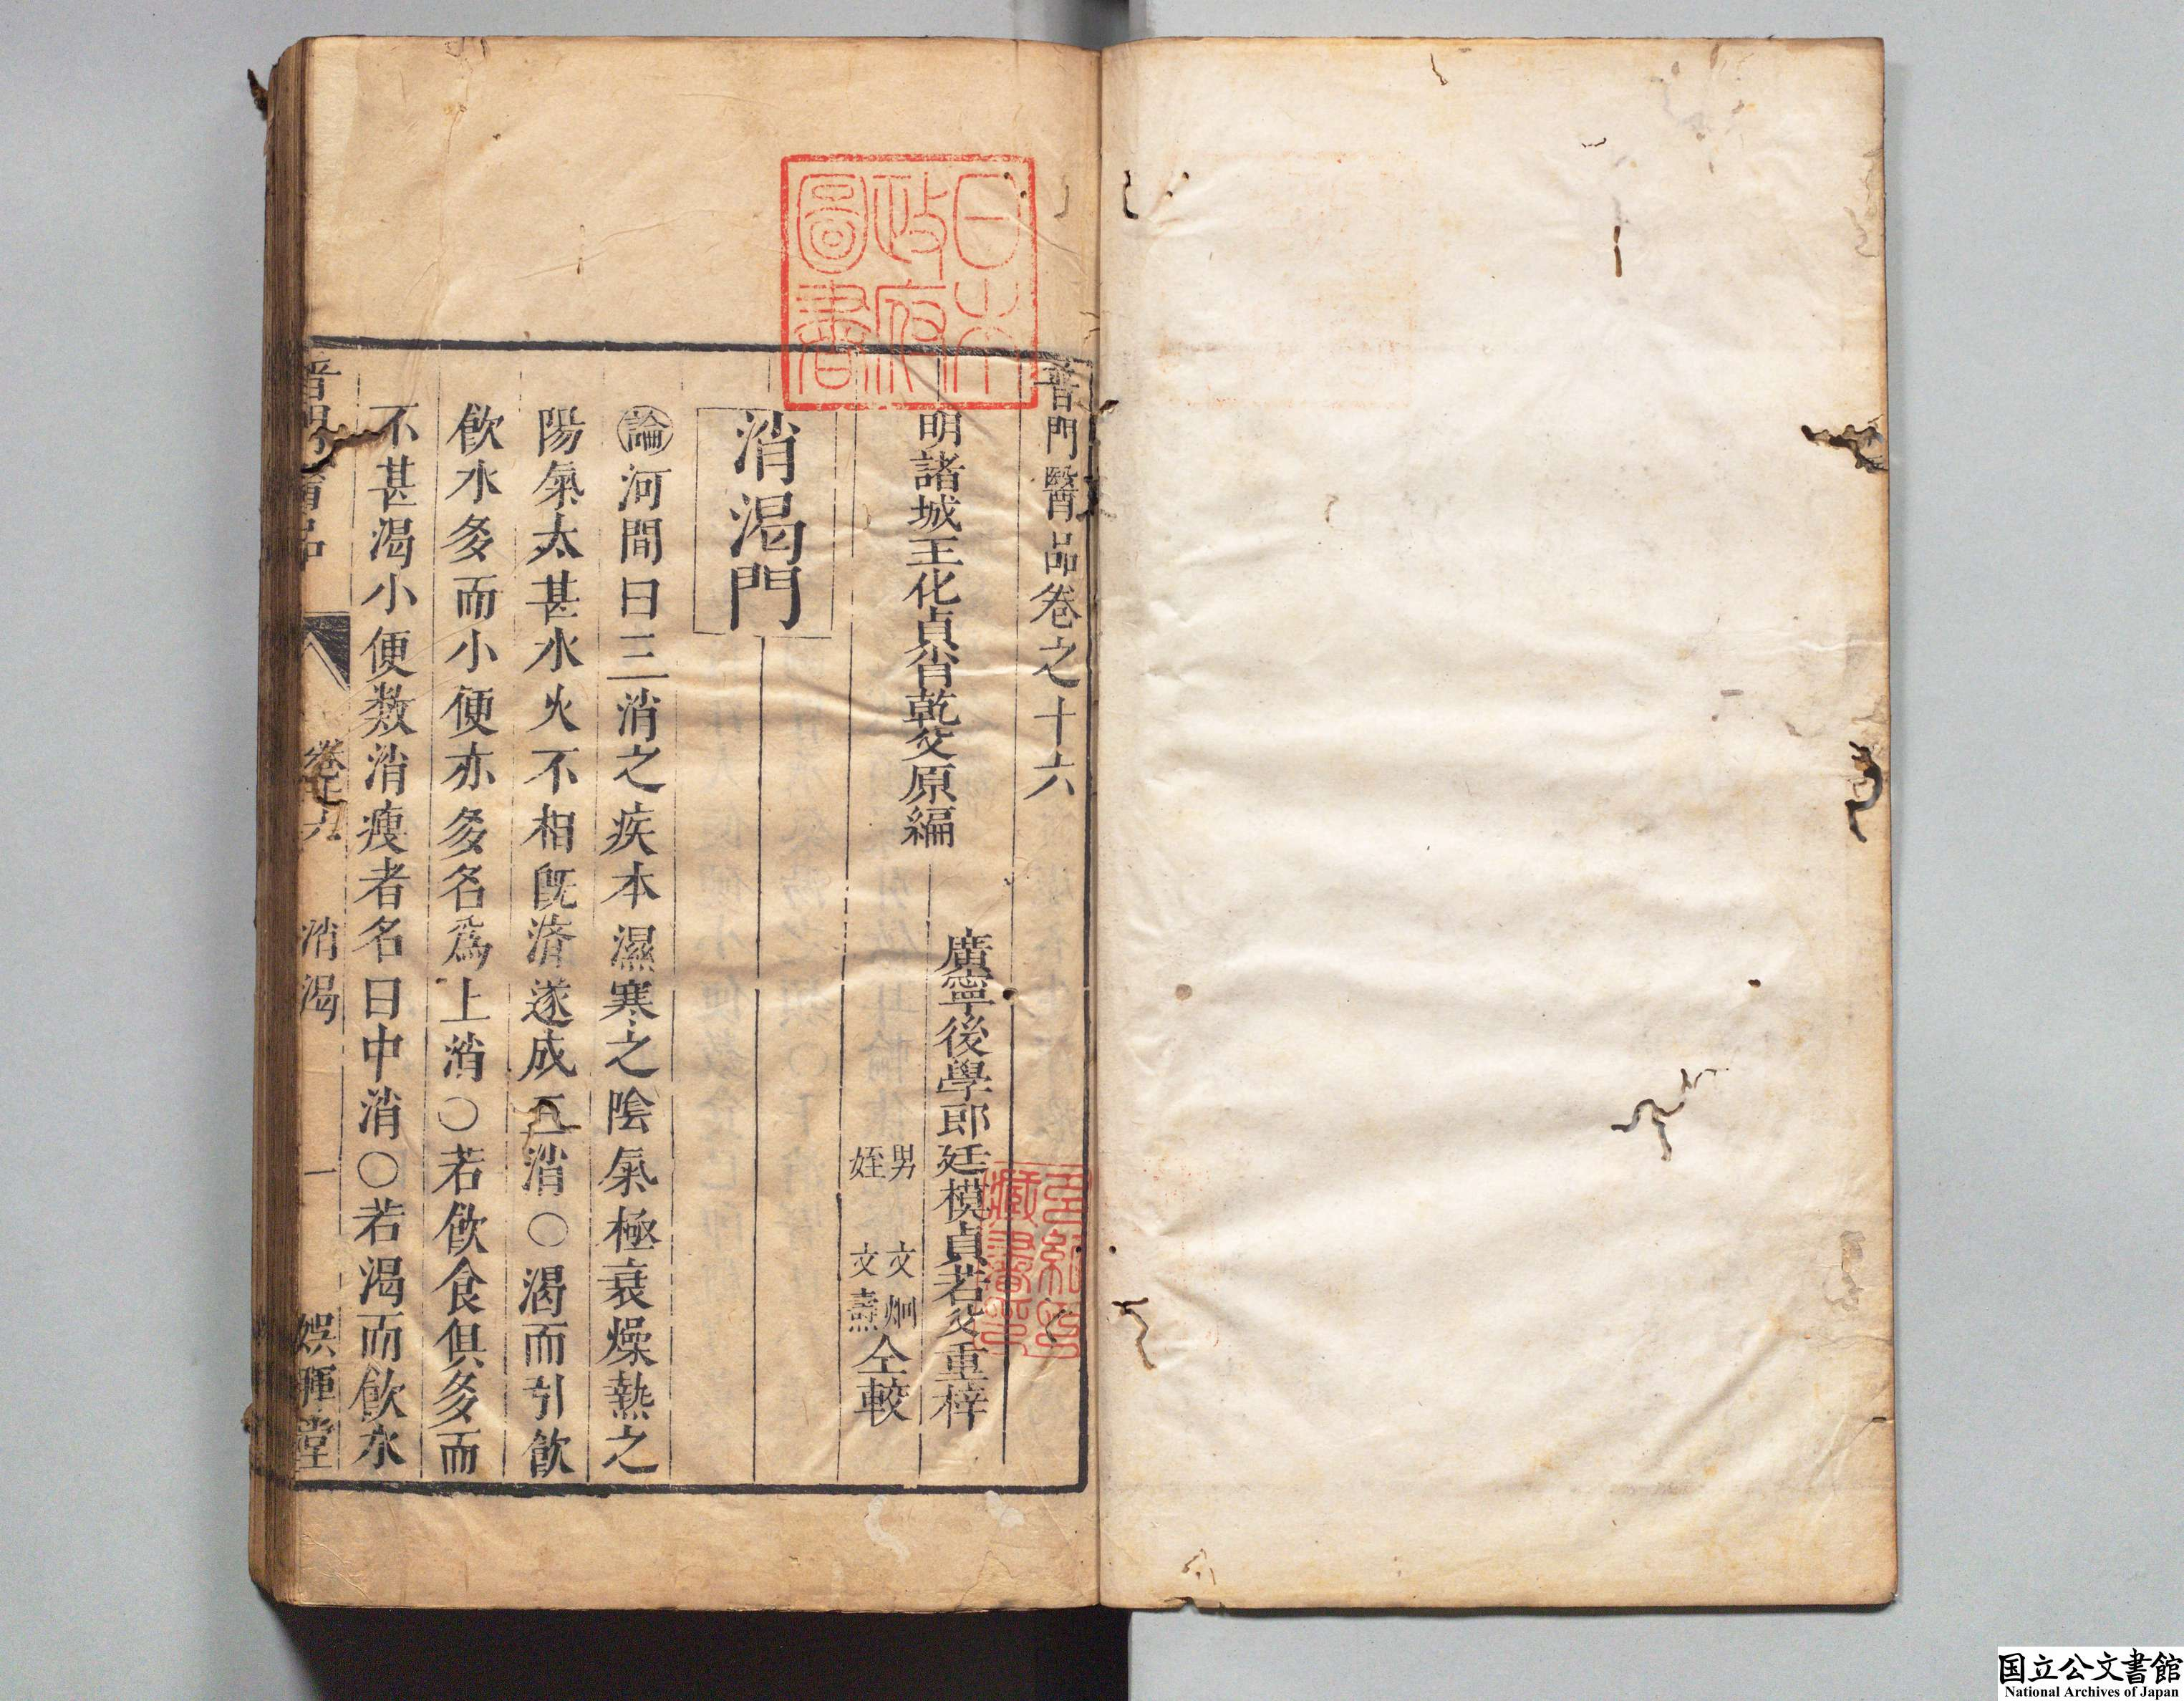 普門醫品卷之十六
明諸城王化貞肖乾父原編
廣寧後學郎廷模貞若父重梓
男 文炯
姪 文燾
仝較
消渴門
論河間曰三消之疾本濕寒之陰氣極衰燥熱之
陽氣太甚水火不相旣濟遂成三消○渴而引飲
飲水多而小便亦多名爲上消○若飲食俱多而
不甚渴小便数消瘦者名曰中消○若渴而飲水
普門醫品 卷十六 消渴 一 娯暉堂
日本政府圖書
国立公文書館
National Archives of Japan